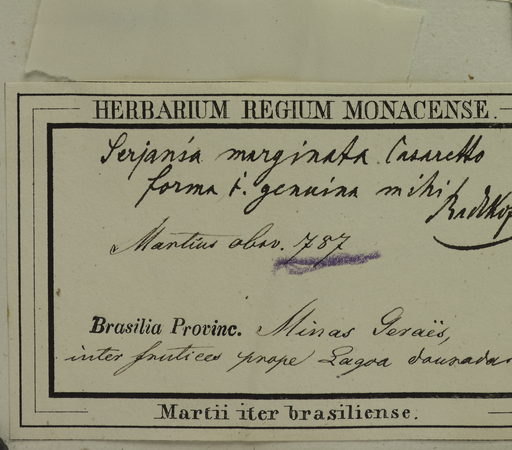 HERBARIUM REGIUM MONACENSE.
Serjania marginata Casaretto
forma 1. genuina mihi
Radlkof
Martius obsv. 787
Brasilia Provinc. Minas Geraës,
inter frutices prope Lagoa dourada
Martii iter brasiliense.